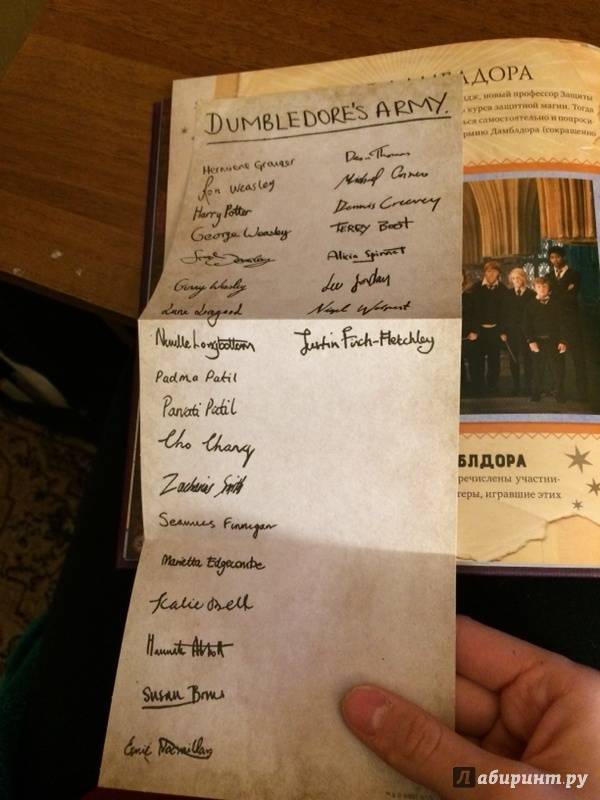 ДАМБЛДОРА
дж, новый профессор Защиты
курса защитной магии. Тогда
ься самостоятельно и попроси
рмию Дамблдора (сокращенно
DUMBLEDORE'S ARMY.
Hermione Granger
Ron Weasley
Harry Potter
George Weasley
Ginny Weasley
Luna Lovegood
Neville Longbottom
Padma Patil
Parvati Patil
Cho Chang
Zacharias Smith
Seamus Finnigan
Marietta Edgecombe
Katie Bell
Hannah Abbott
Susan Bones
Ernie Macmillan
Dean Thomas
Michael Corner
Dennis Creevey
TERRY BOOT
Alicia Spinnet
Lee Jordan
Nigel Wolpert
Justin Finch-Fletchley
МБЛДОРА
речислены участни-
теры, игравшие этих
Лабиринт.ру